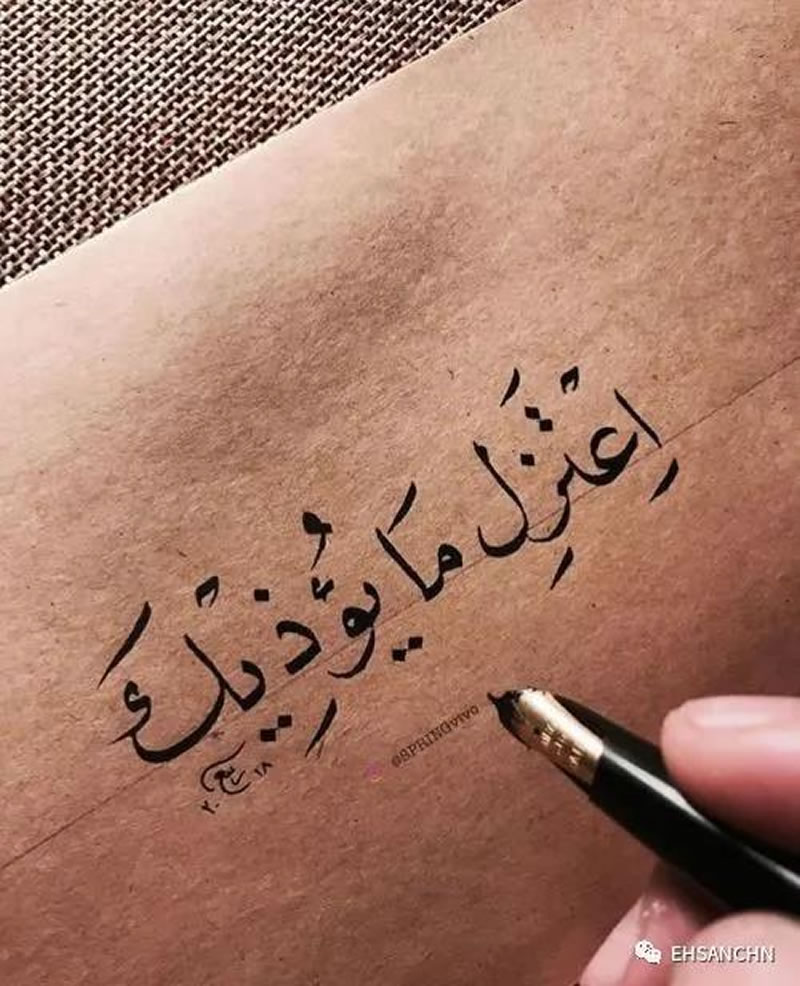 اِعْتَزِل مَا يُؤْذِيْكَ
ربيع
٢٠١٨
@SPRINGVIVO
EHSANCHN